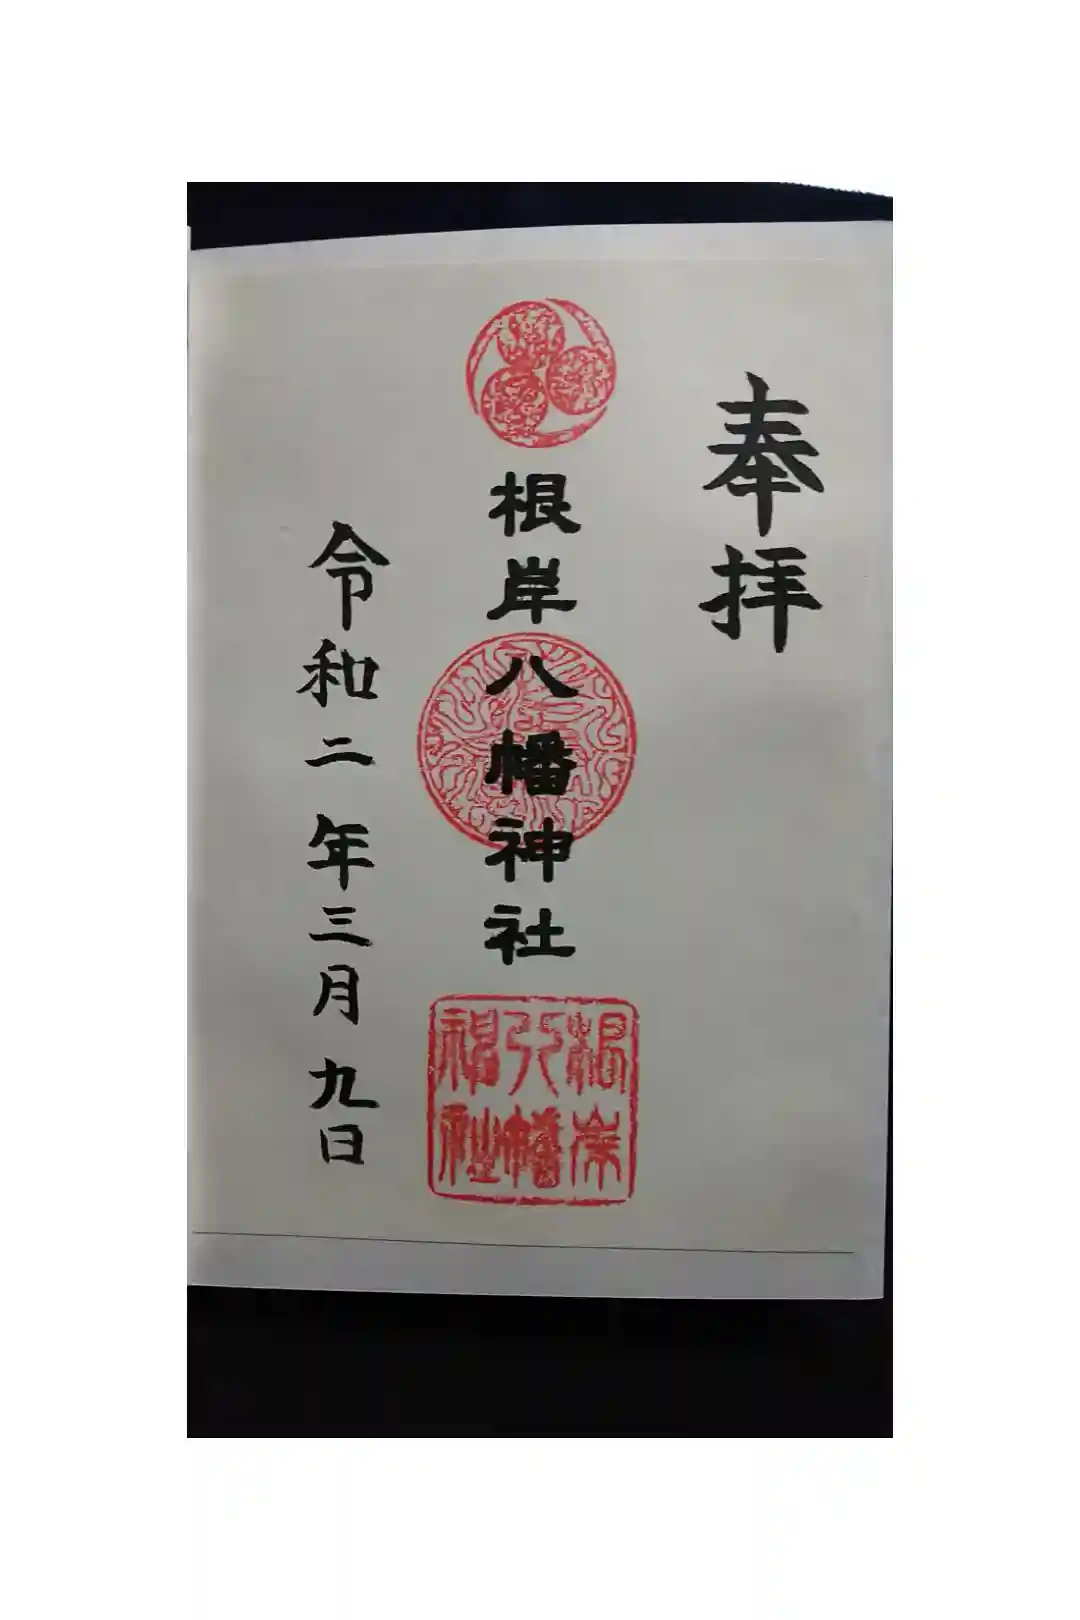 奉拝
根岸八幡神社
令和二年三月九日
根岸
八幡
神社